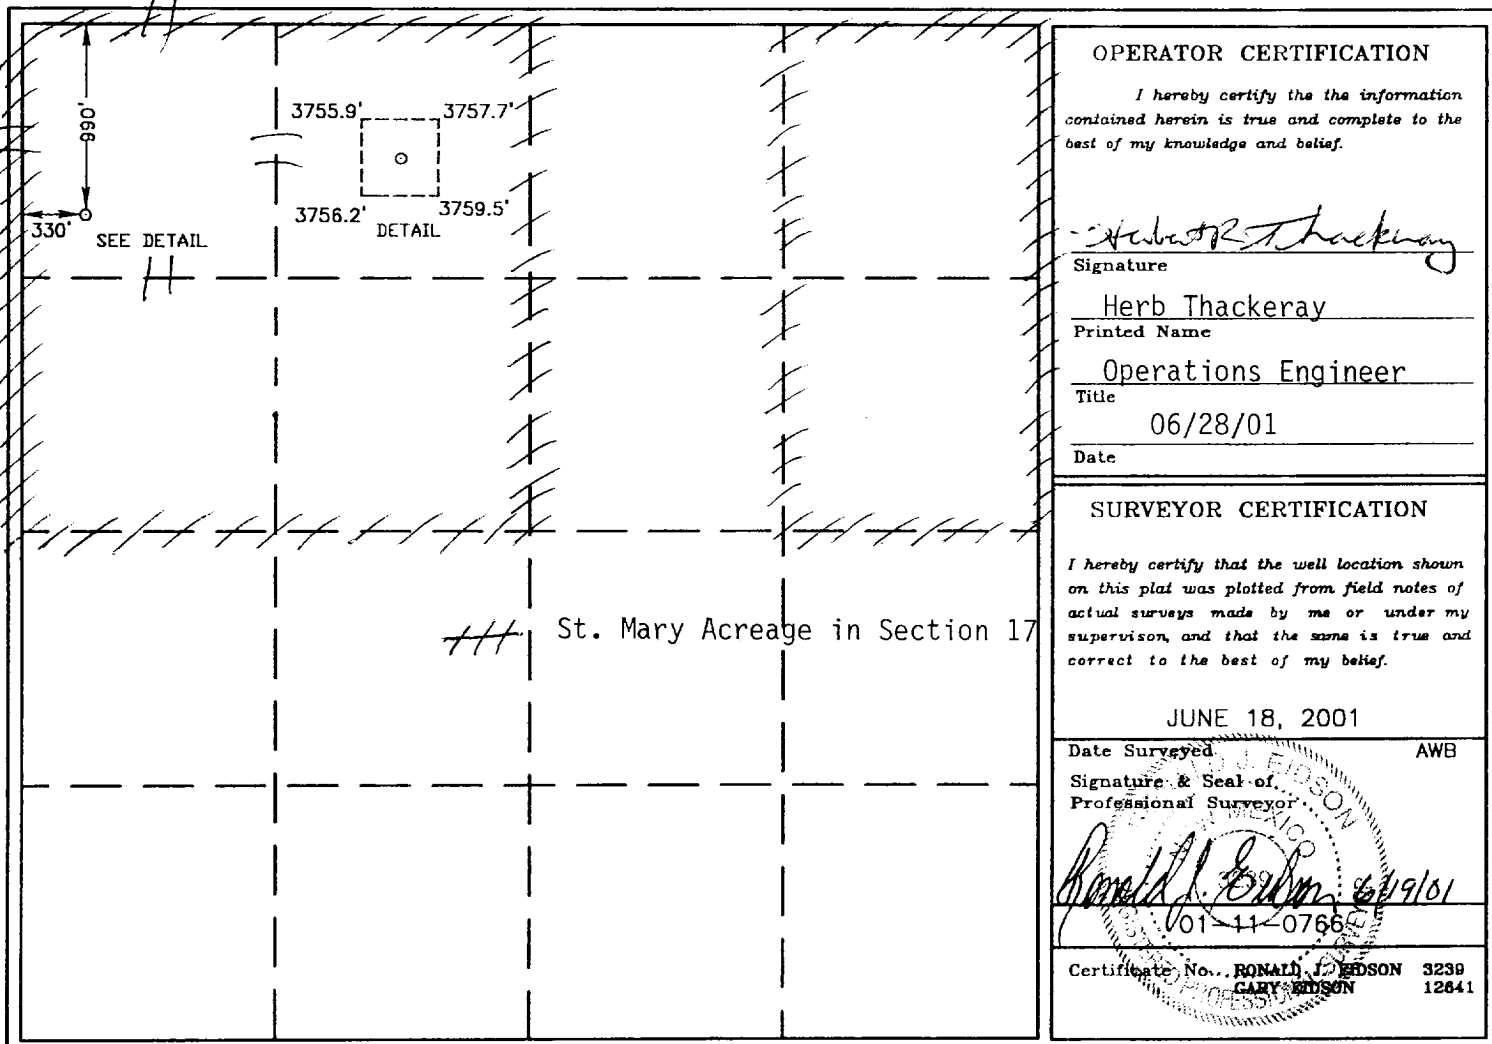 990'
330'
SEE DETAIL
3755.9'
3757.7'
3756.2'
3759.5'
DETAIL
St. Mary Acreage in Section 17
OPERATOR CERTIFICATION
I hereby certify the the information
contained herein is true and complete to the
best of my knowledge and belief.
Herbert R Thackeray
Signature
Herb Thackeray
Printed Name
Operations Engineer
Title
06/28/01
Date
SURVEYOR CERTIFICATION
I hereby certify that the well location shown
on this plat was plotted from field notes of
actual surveys made by me or under my
supervison, and that the same is true and
correct to the best of my belief.
JUNE 18, 2001
Date Surveyed AWB
Signature & Seal of
Professional Surveyor
RONALD J. EIDSON
NEW MEXICO
3239
PROFESSIONAL SURVEYOR
Ronald J. Eidson 6/19/01
01-11-0766
Certificate No. RONALD J. EIDSON 3239
GARY EIDSON 12641